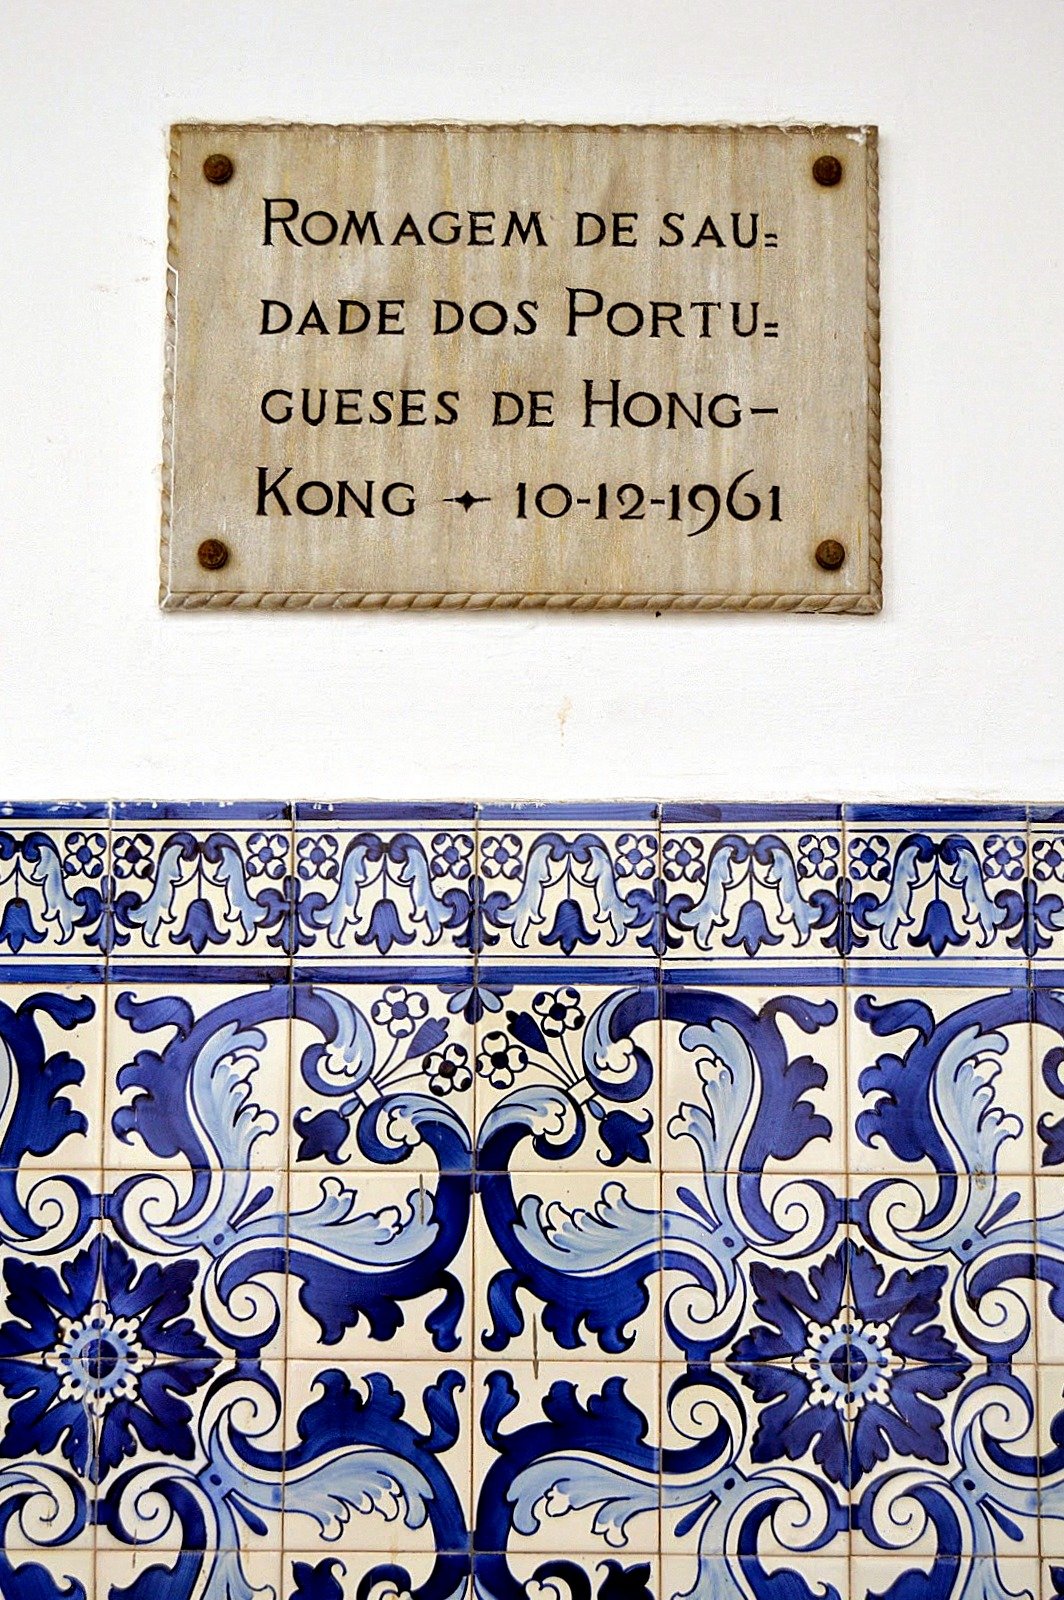 ROMAGEM DE SAU=
DADE DOS PORTU=
GUESES DE HONG-
KONG ✦ 10-12-1961